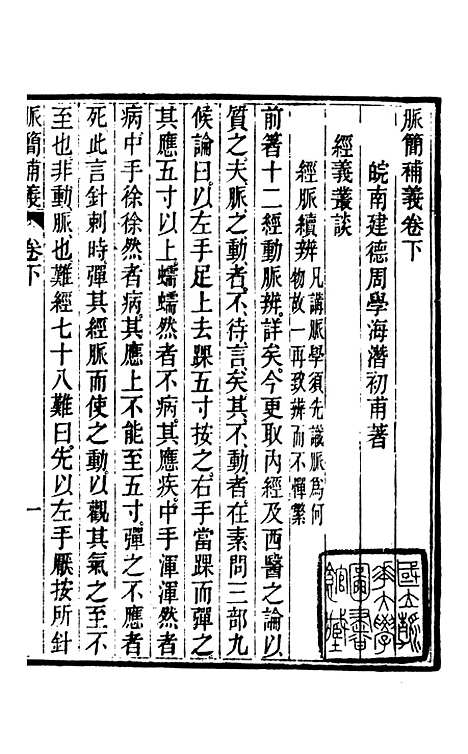 脈簡補義卷下
皖南建德周學海潛初甫著
經義叢談
經脈續辨
凡講脈學須先識脈為何
物故一再致辨而不憚繁
前著十二經動脈辨詳矣今更取內經及西醫之論以
質之夫脈之動者不待言矣其不動者在素問三部九
候論曰以左手足上去踝五寸按之右手當踝而彈之
其應五寸以上蠕蠕然者不病其應疾中手渾渾然者
病中手徐徐然者病其應上不能至五寸彈之不應者
死此言針刺時彈其經脈而使之動以觀其氣之至不
至也非動脈也難經七十八難曰先以左手厭按所針
脈簡補義
卷下
一
國立
大學
圖書
館藏